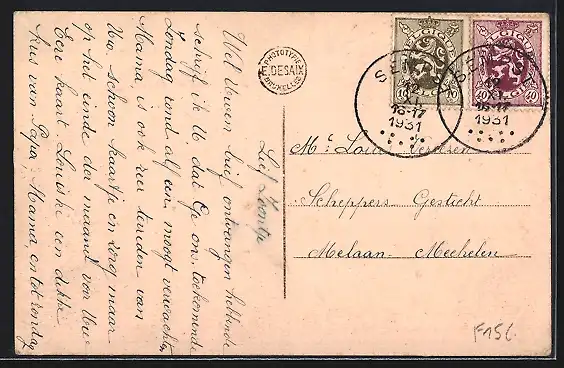 Lief Zoontje
Uw brief ontvangen hebbende
schrijf ik U dat Ge ons toekomende
Zondag rond alf een moogt verwachten
Mama, is ook zeer tevreden van
Uw schoon kaartje en zorg maar
op het einde der maand voor Uwe
Eere kaart Louiske een dikke
kus van Papa Mama, en tot zondag
PHOTOTYPIE
E. DESAIX
BRUXELLES
BELGIQUE
10 10
BELGIE
40 40
XII
16-17
1931
XII
16-17
1931
Mr Louis
Scheppers Gesticht
Melaan - Mechelen
F156